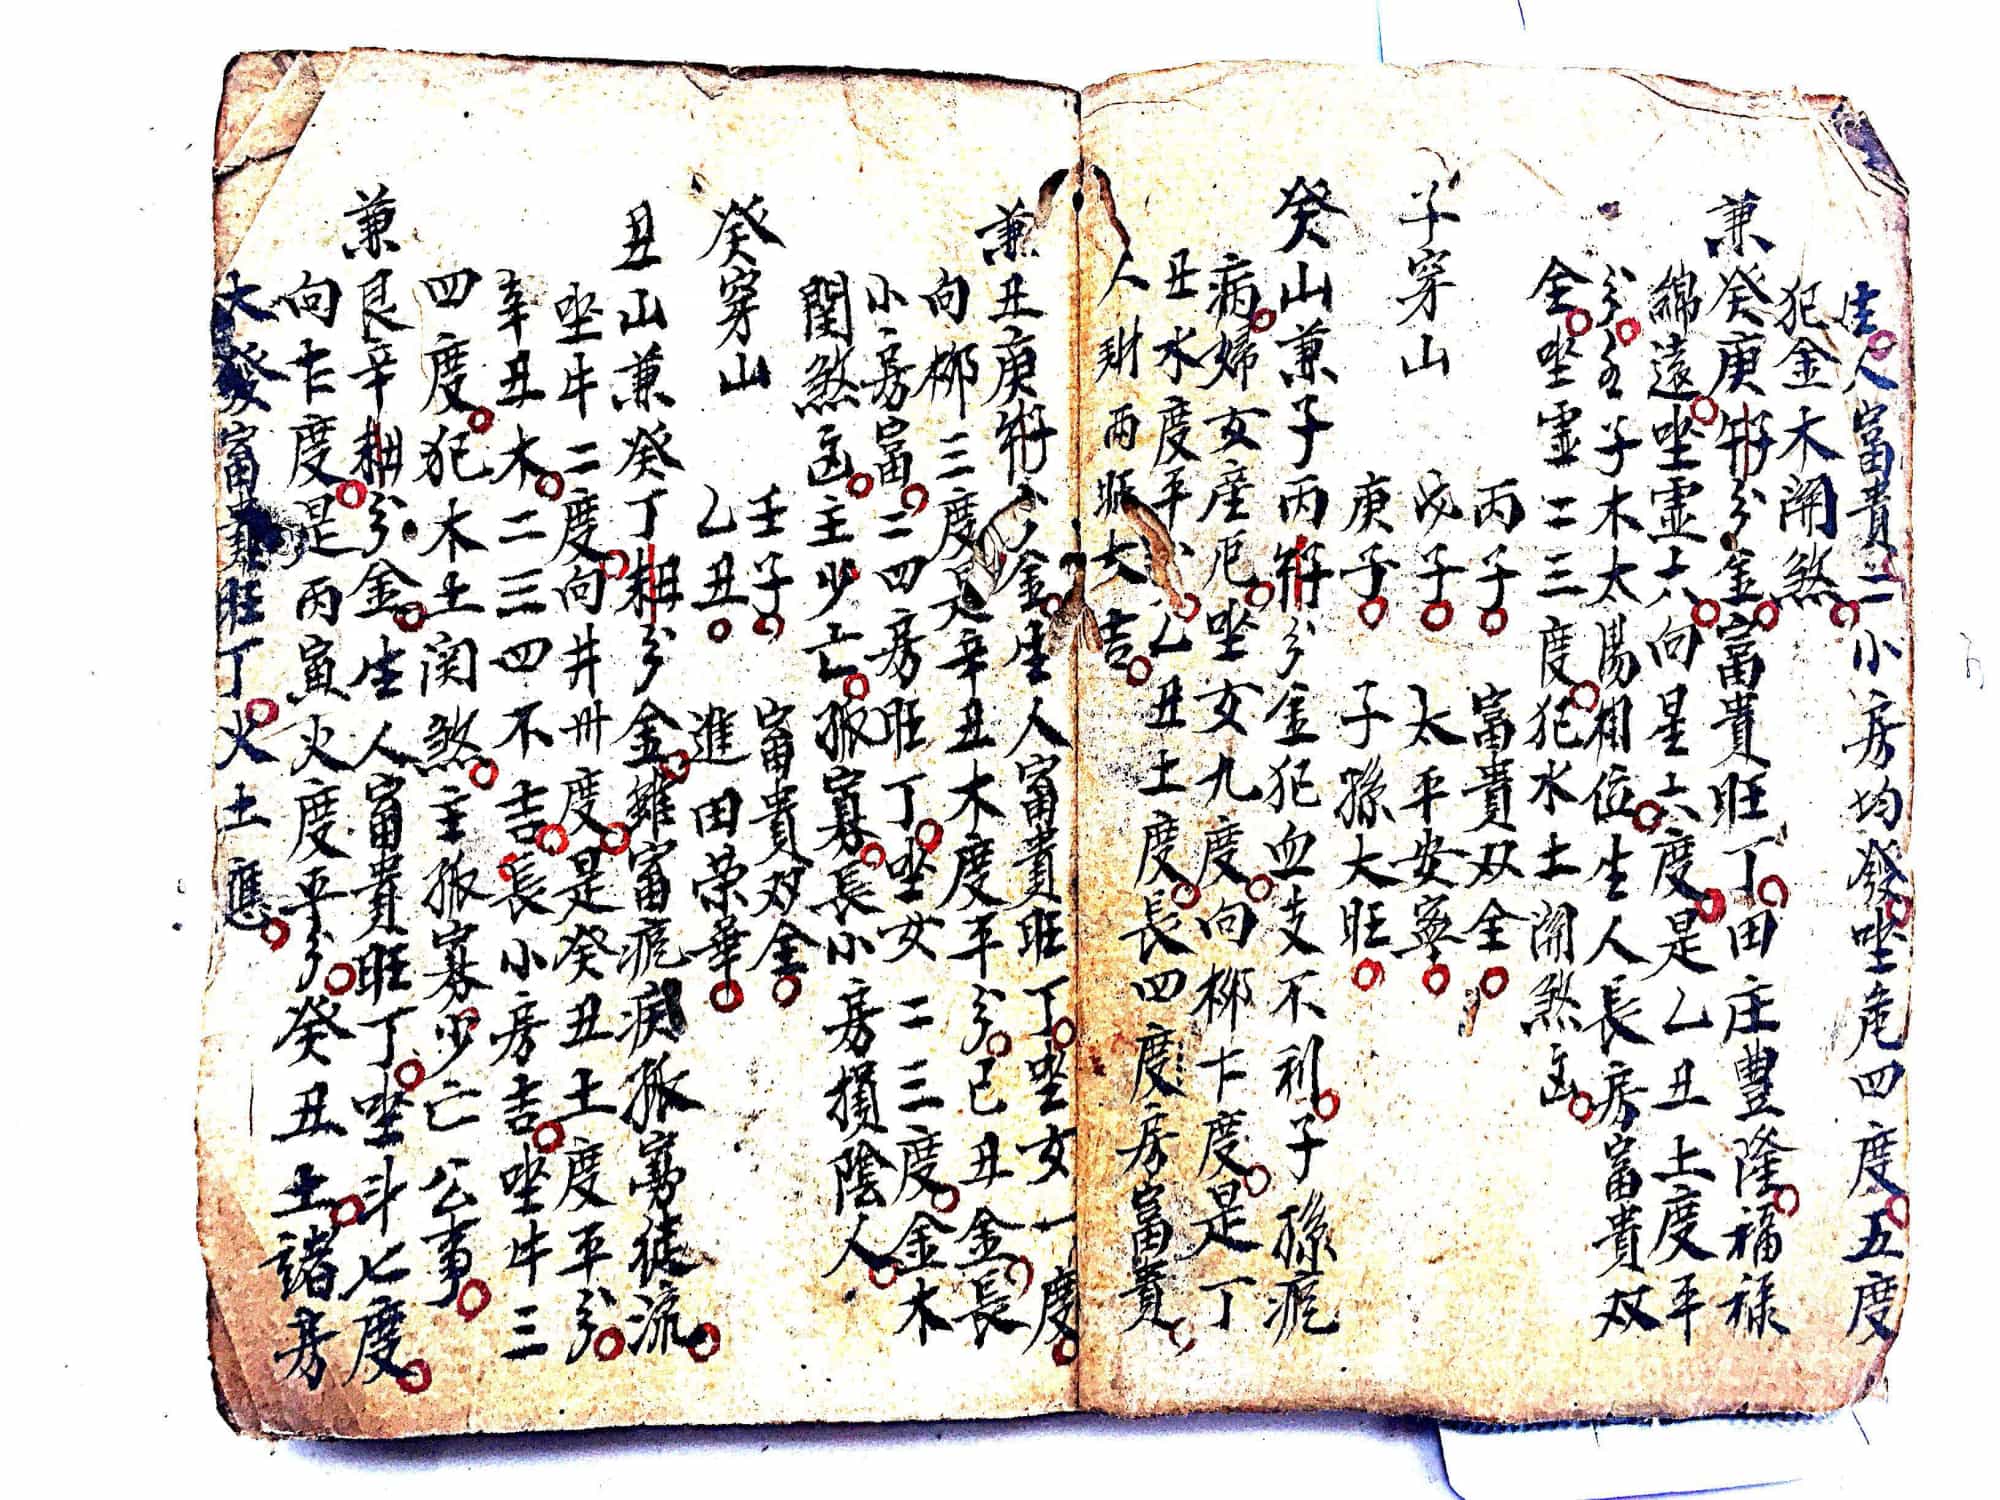 生人富貴二小房均發坐危四度五度
犯金木關煞
兼癸庚午子分金富貴旺丁田庄豊隆福祿
綿遠坐虛六向星六度是乙丑土度平
分名子木太陽相位生人長房富貴双
全坐虛二三度犯水土關煞凶
子穿山
丙子 富貴双全
戊子 太平安寧
庚子 子孫大旺
癸山兼子丙午子分金犯血支不利子孫瘧
病婦女産厄坐女九度向柳十度是丁
丑水度平分乙丑土度長四度房富貴
人財兩旺大吉
兼丑庚午子分金生人富貴旺丁坐女一度
向柳三度是辛丑木度平分己丑金長
小房富二四房旺丁坐女二三度金木
関煞凶主少亡孤寡長小房損陰人
癸穿山
壬子 富貴双全
乙丑 進田荣華
丑山兼癸丁丑未分金雖富瘧疾孤寡徒流
坐牛二度向井卅度是癸丑土度平分
辛丑木二三四不吉長小房吉坐牛三
四度犯木土関煞主孤寡少亡公事
兼艮辛丑未分金生人富貴旺丁坐斗七度
向十度是丙寅火度平分癸丑土諸房
大發富貴旺丁火土應